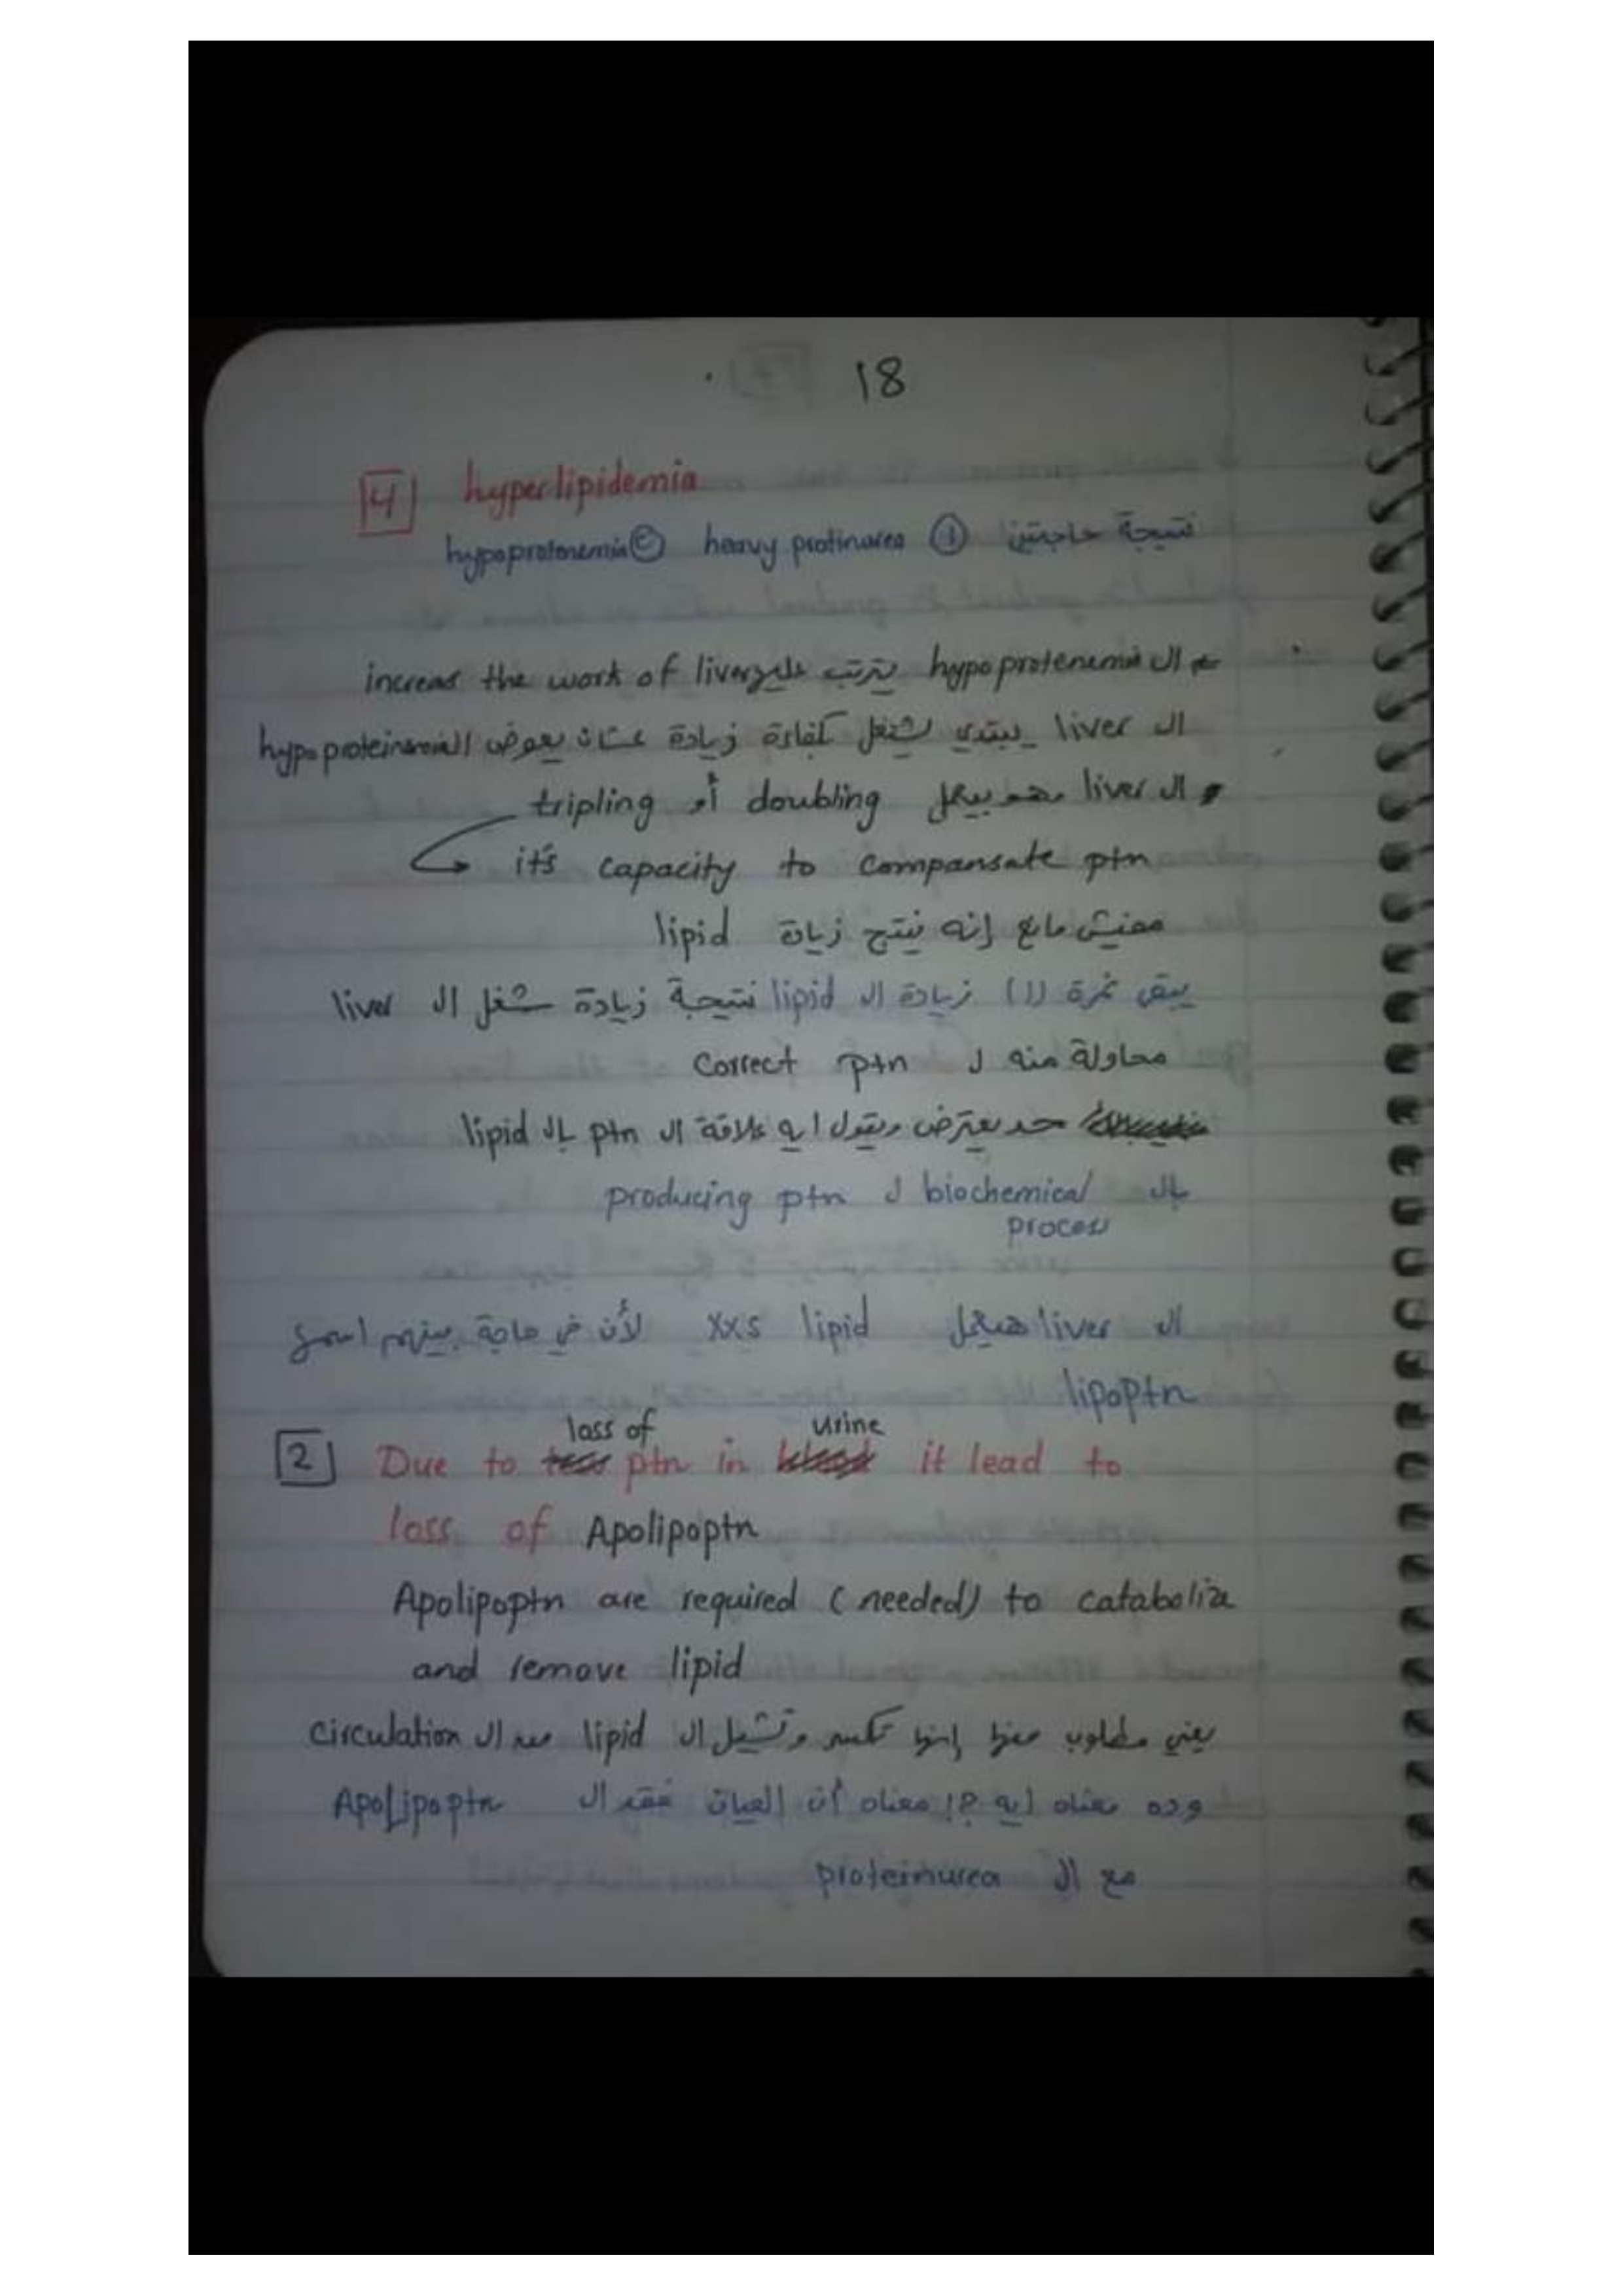 18
4 hyperlipidemia
نتيجة حاجتين ① heavy protinurea ② hypoprotenemia
ال hypoprotenemia يترتب عليه increas the work of liver
ال liver يبتدي يشتغل كفاءة زيادة عشان يعوض ال hypoproteinemia
ال liver وهو بيعمل doubling أو tripling
it's capacity to compansate ptn
مفيش مانع إنه ينتج زيادة lipid
يبقى نمرة (1) زيادة ال lipid نتيجة زيادة شغل ال liver
محاولة منه ل correct ptn
حد يعترض ويقول ايه علاقة ال ptn بال lipid
بال biochemical ل producing ptn
process
ال liver هيعمل lipid xxs لأن في حاجة بينهم اسمع
lipoptn
loss of urine
2 Due to ptn in it lead to
loss of Apolipoptn
Apolipoptn are required (needed) to catabolize
and remove lipid
يعني مطلوب منها إنها تكسر وتشيل ال lipid من ال circulation
وده معناه ايه ؟! معناه أن العيان فقد ال Apolipoptn
مع ال proteinurea